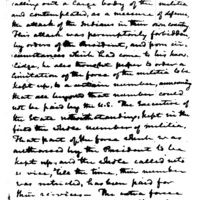 calling out a large body of the militia
and contemplated, as a measure of defence,
the attack of the Indians in their own country.
This attack was peremptorily forbidden
by order of the President, and from cir-
cumstances which had come to his know-
ledge, he also thought proper to order a
limitation of the force of the militia to be
kept up, to a certain number, announcing
that all beyond that number could
not be paid by the U.S. The Executive of
the State notwithstanding, kept in the
field the whole number of militia.
That part of the force which was
authorised by the President to be
kept up, and the whole called into
service, till the time their number
was restricted, has been paid for
their services. The extra force